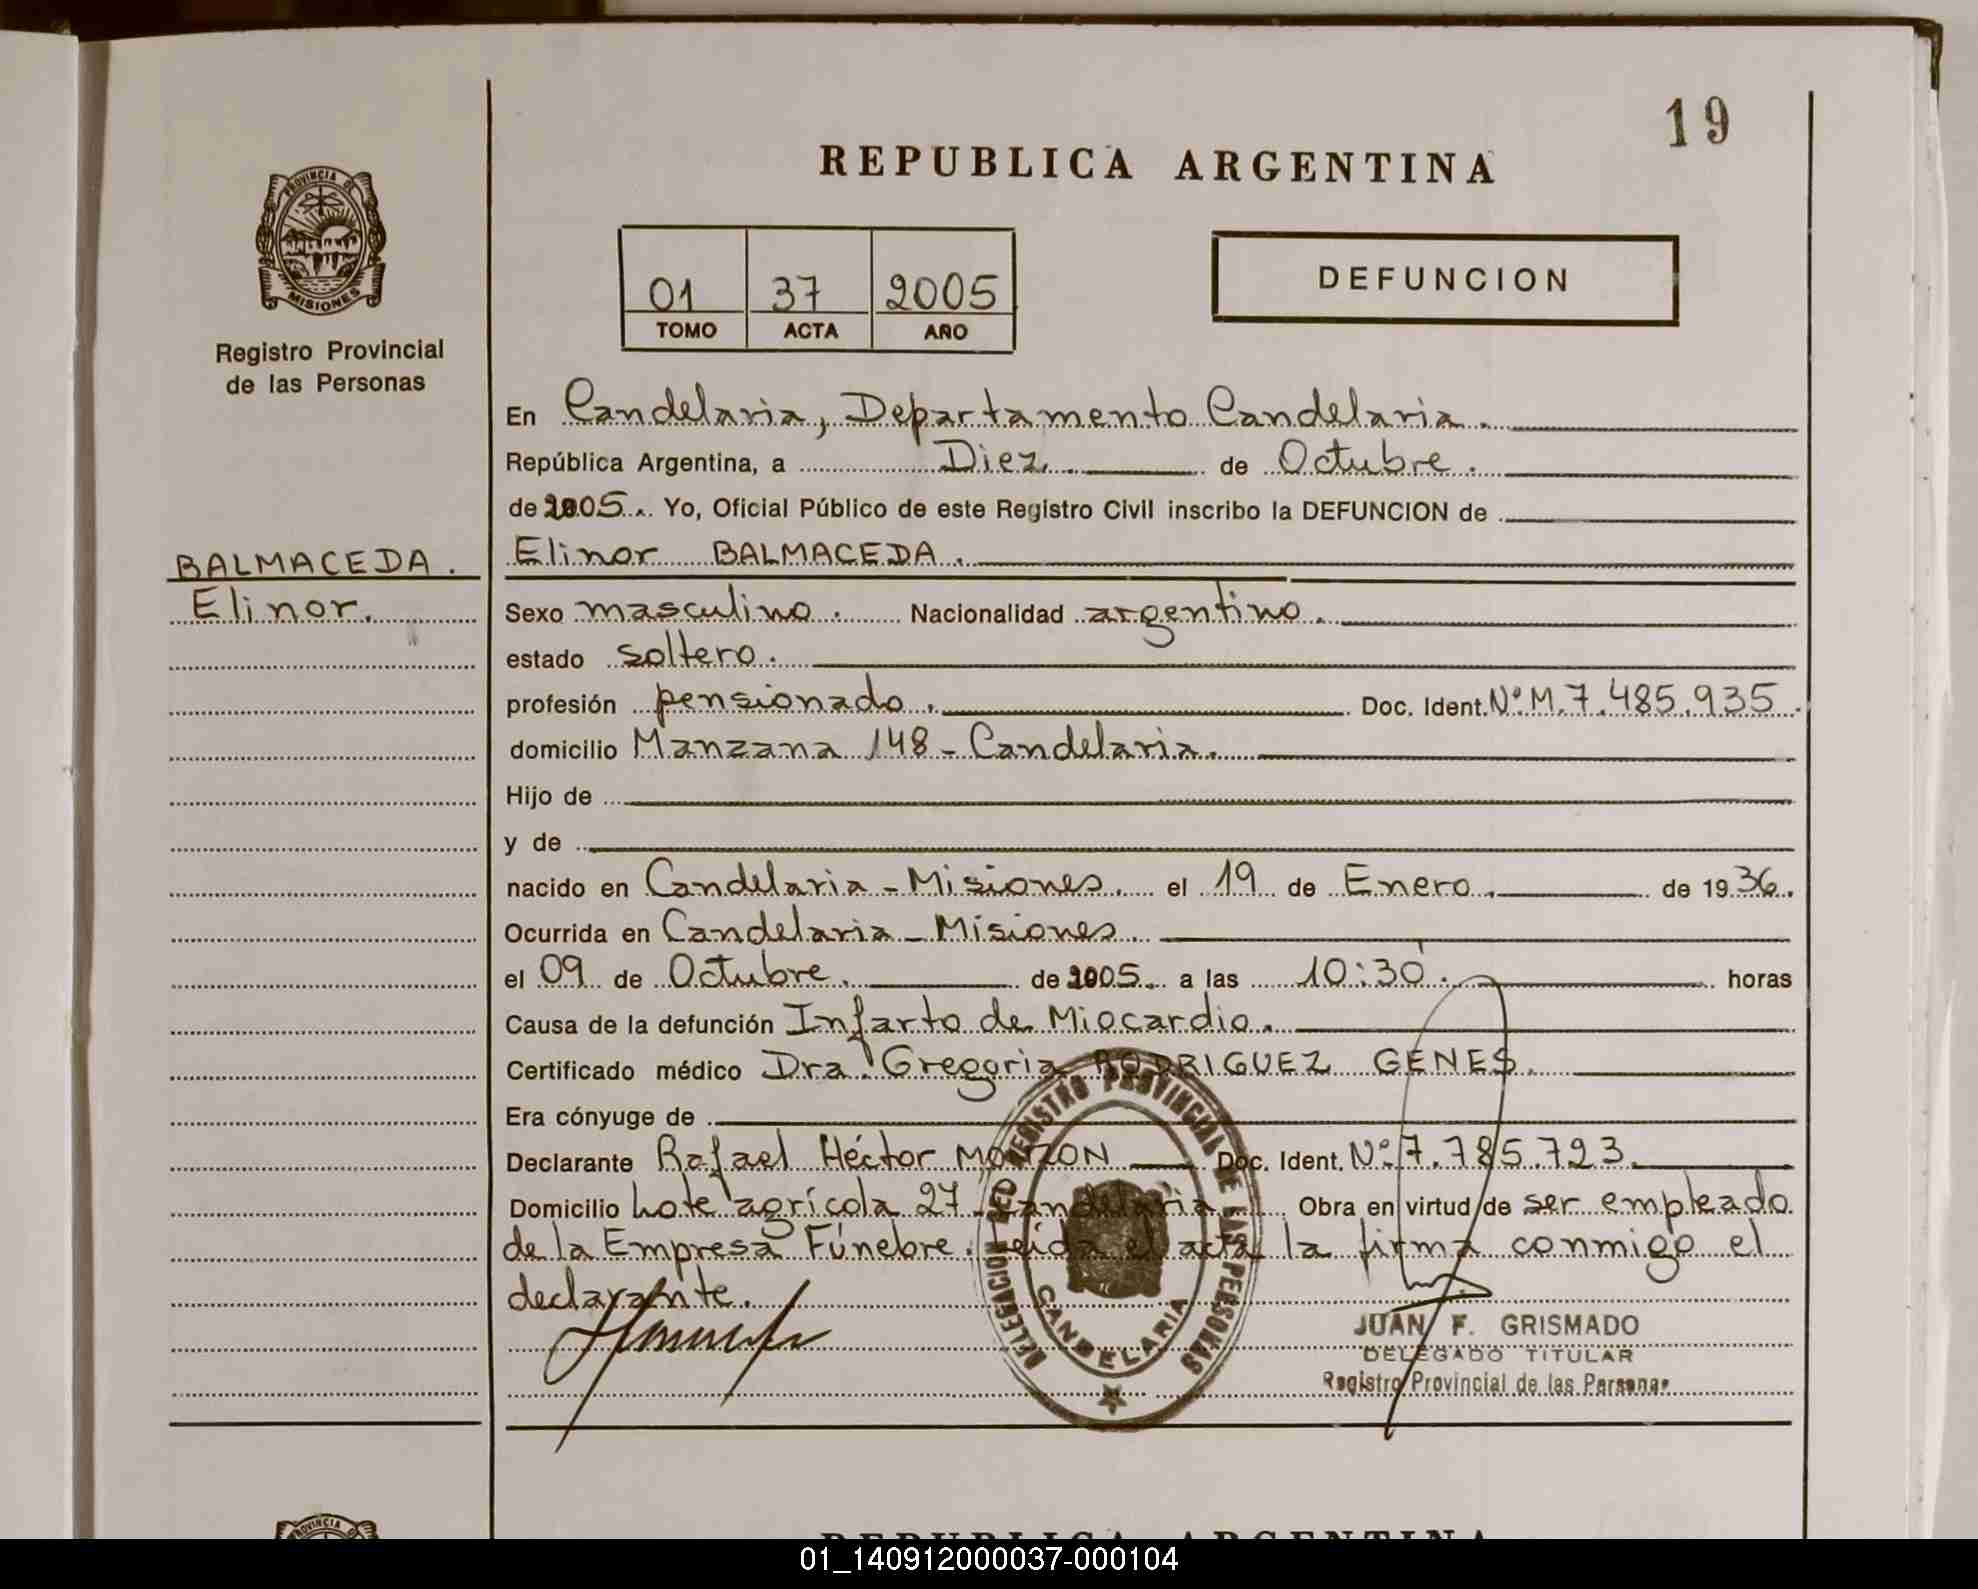 19
REPUBLICA ARGENTINA
PROVINCIA DE
MISIONES
Registro Provincial
de las Personas
01 37 2005
TOMO ACTA AÑO
DEFUNCION
En Candelaria, Departamento Candelaria.
República Argentina, a Diez. de Octubre.
de 2005. Yo, Oficial Público de este Registro Civil inscribo la DEFUNCION de
BALMACEDA.
Elinor BALMACEDA.
Elinor.
Sexo masculino. Nacionalidad argentino.
estado soltero.
profesión pensionado. Doc. Ident. Nº M. 7.485.935.
domicilio Manzana 148 - Candelaria.
Hijo de
y de
nacido en Candelaria - Misiones. el 19 de Enero. de 1936.
Ocurrida en Candelaria - Misiones.
el 09 de Octubre. de 2005. a las 10:30. horas
Causa de la defunción Infarto de Miocardio.
Certificado médico Dra. Gregoria RODRIGUEZ GENES.
Era cónyuge de
Declarante Rafael Héctor MONZON Doc. Ident. Nº 7.785.723.
Domicilio Lote agrícola 27 - Candelaria. Obra en virtud de ser empleado
de la Empresa Fúnebre. Leída el acta la firma conmigo el
declarante.
REGISTRO PROVINCIAL DE LAS PERSONAS
DELEGACION
CANDELARIA
JUAN F. GRISMADO
DELEGADO TITULAR
Registro Provincial de las Personas
PROVINCIA DE
REPUBLICA ARGENTINA
01_140912000037-000104